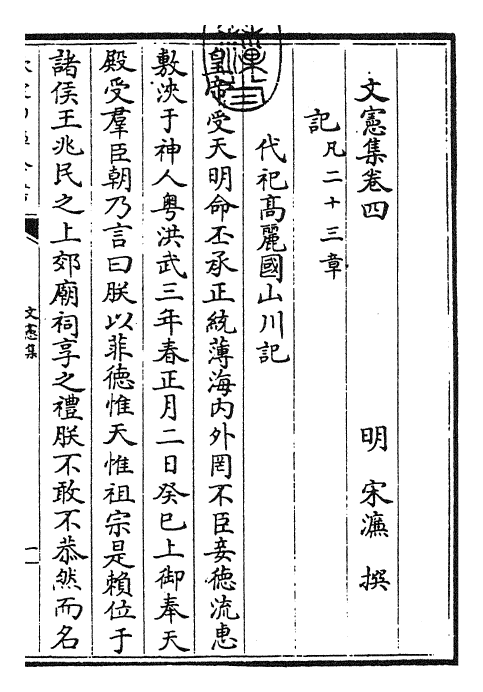 文憲集卷四
明 宋濂 撰
記凡二十三章
代祀高麗國山川記
皇帝受天明命丕承正統薄海内外罔不臣妾徳流惠
敷浹于神人粤洪武三年春正月二日癸巳上御奉天
殿受羣臣朝乃言曰朕以菲徳惟天惟祖宗是賴位于
諸侯王兆民之上郊廟祠享之禮朕不敢不恭然而名
文憲集
一